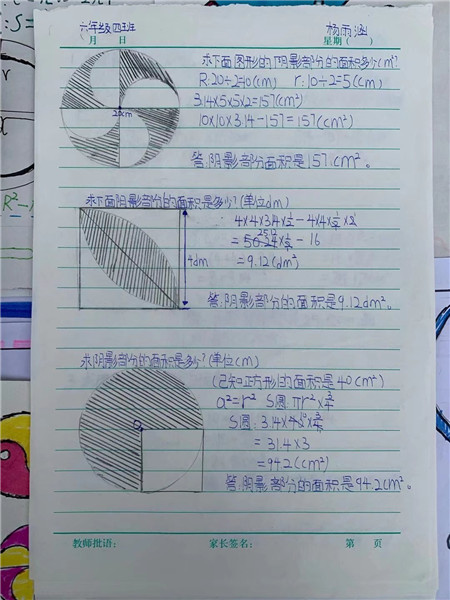 六年级四班
杨雨涵
月 日 星期( )
求下面图形的阴影部分的面积多少cm²?
R:20÷2=10(cm) r:10÷2=5(cm)
3.14×5×5×2=157(cm²)
20cm
10×10×3.14-157=157(cm²)
答:阴影部分面积是157cm²。
求下面阴影部分的面积是多少?(单位dm)
4×4×3.14×½-4×4×½×2
=25.12×½-16
4dm
=9.12(dm²)
答:阴影部分的面积是9.12dm²。
求阴影部分的面积是多少?(单位cm)
(已知正方形的面积是40cm²)
a²=r² S圆:πr²×¾
S圆:3.14×40×¾
=31.4×3
=94.2(cm²)
答:阴影部分的面积是94.2cm²。
教师批语: 家长签名: 第 页